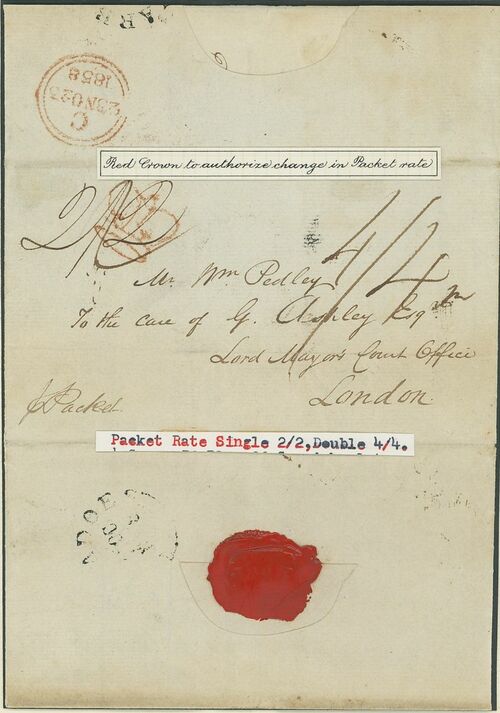 C
23NO23
1838
Red Crown to authorize change in Packet rate
2/2
4/4
Mr. Wm Pedley
To the care of G. Ashley Esqre
Lord Mayor's Court Office
London.
Packet
Packet Rate Single 2/2, Double 4/4.